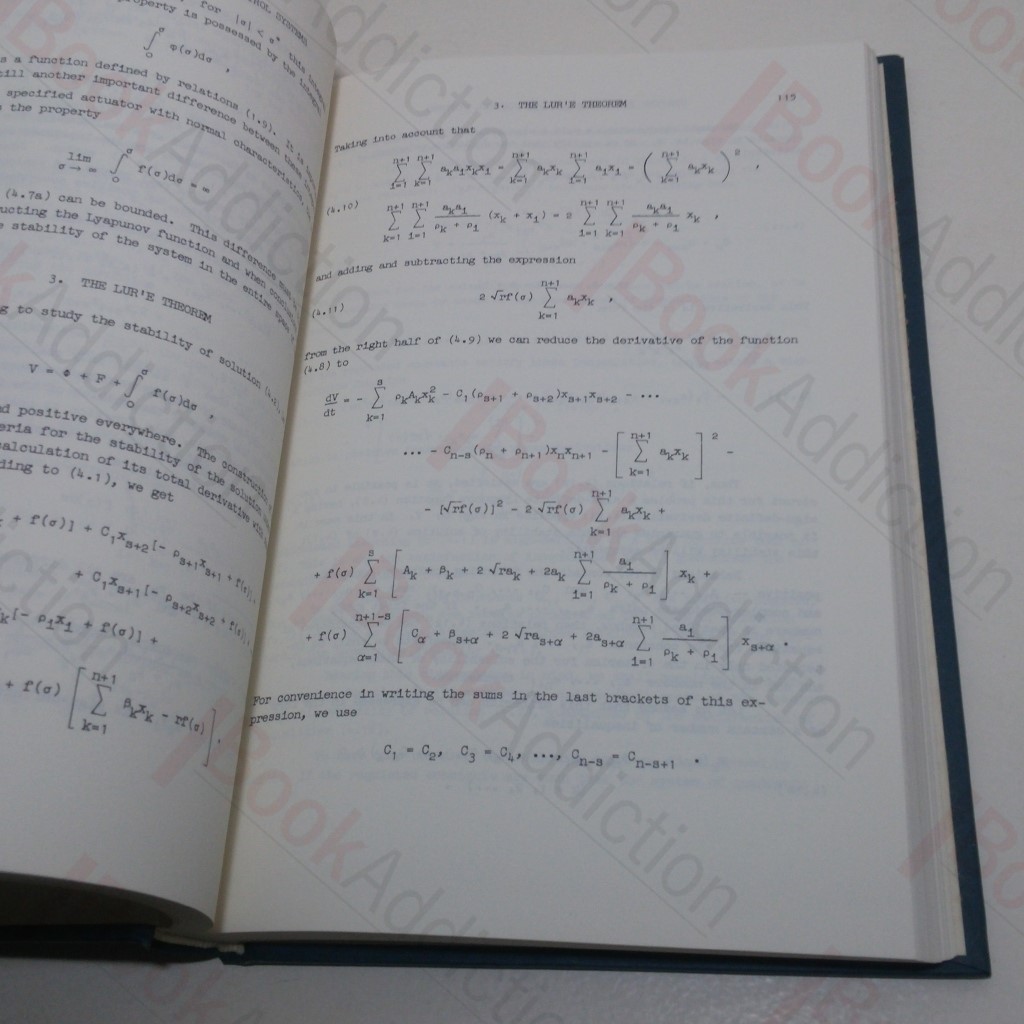 TROL SYSTEMS
for |σ| < σ* this
property is possessed by the
∫₀^σ φ(σ)dσ ,
s a function defined by relations (1.9). It is
till another important difference between these
specified actuator with normal characteristics,
s the property
lim_{σ→∞} ∫₀^σ f(σ)dσ = ∞
(4.7a) can be bounded. This difference must
ucting the Lyapunov function and when
e stability of the system in the entire space
3. THE LUR'E THEOREM
g to study the stability of solution
V = Φ + F + ∫₀^σ f(σ)dσ ,
nd positive everywhere. The construction
eria for the stability of the solution
calculation of its total derivative
ding to (4.1), we get
+ f(σ)] + C₁x_{s+2}[- ρ_{s+1}x_{s+1} + f(σ)]
+ C₁x_{s+1}[- ρ_{s+2}x_{s+2} + f(σ)]
k[- ρ_i x_i + f(σ)] +
+ f(σ) [∑_{k=1}^{n+1} β_k x_k - rf(σ)] .
3. THE LUR'E THEOREM 119
Taking into account that
∑_{i=1}^{n+1} ∑_{k=1}^{n+1} a_k a_i x_k x_i = ∑_{k=1}^{n+1} a_k x_k ∑_{i=1}^{n+1} a_i x_i = (∑_{k=1}^{n+1} a_k x_k)² ,
(4.10) ∑_{k=1}^{n+1} ∑_{i=1}^{n+1} a_k a_i / (ρ_k + ρ_i) (x_k + x_i) = 2 ∑_{i=1}^{n+1} ∑_{k=1}^{n+1} a_k a_i / (ρ_k + ρ_i) x_k ,
and adding and subtracting the expression
(4.11) 2 √rf(σ) ∑_{k=1}^{n+1} a_k x_k ,
from the right half of (4.9) we can reduce the derivative of the function
(4.8) to
dV/dt = - ∑_{k=1}^{s} ρ_k A_k x_k² - C₁(ρ_{s+1} + ρ_{s+2})x_{s+1}x_{s+2} - ...
... - C_{n-s}(ρ_n + ρ_{n+1})x_n x_{n+1} - [∑_{k=1}^{n+1} a_k x_k]² -
- [√rf(σ)]² - 2 √rf(σ) ∑_{k=1}^{n+1} a_k x_k +
+ f(σ) ∑_{k=1}^{s} [A_k + β_k + 2 √ra_k + 2a_k ∑_{i=1}^{n+1} a_i / (ρ_k + ρ_i)] x_k +
+ f(σ) ∑_{α=1}^{n+1-s} [C_α + β_{s+α} + 2 √ra_{s+α} + 2a_{s+α} ∑_{i=1}^{n+1} a_i / (ρ_k + ρ_i)] x_{s+α} .
For convenience in writing the sums in the last brackets of this ex-
pression, we use
C₁ = C₂, C₃ = C₄, ..., C_{n-s} = C_{n-s+1} .
BookAddiction